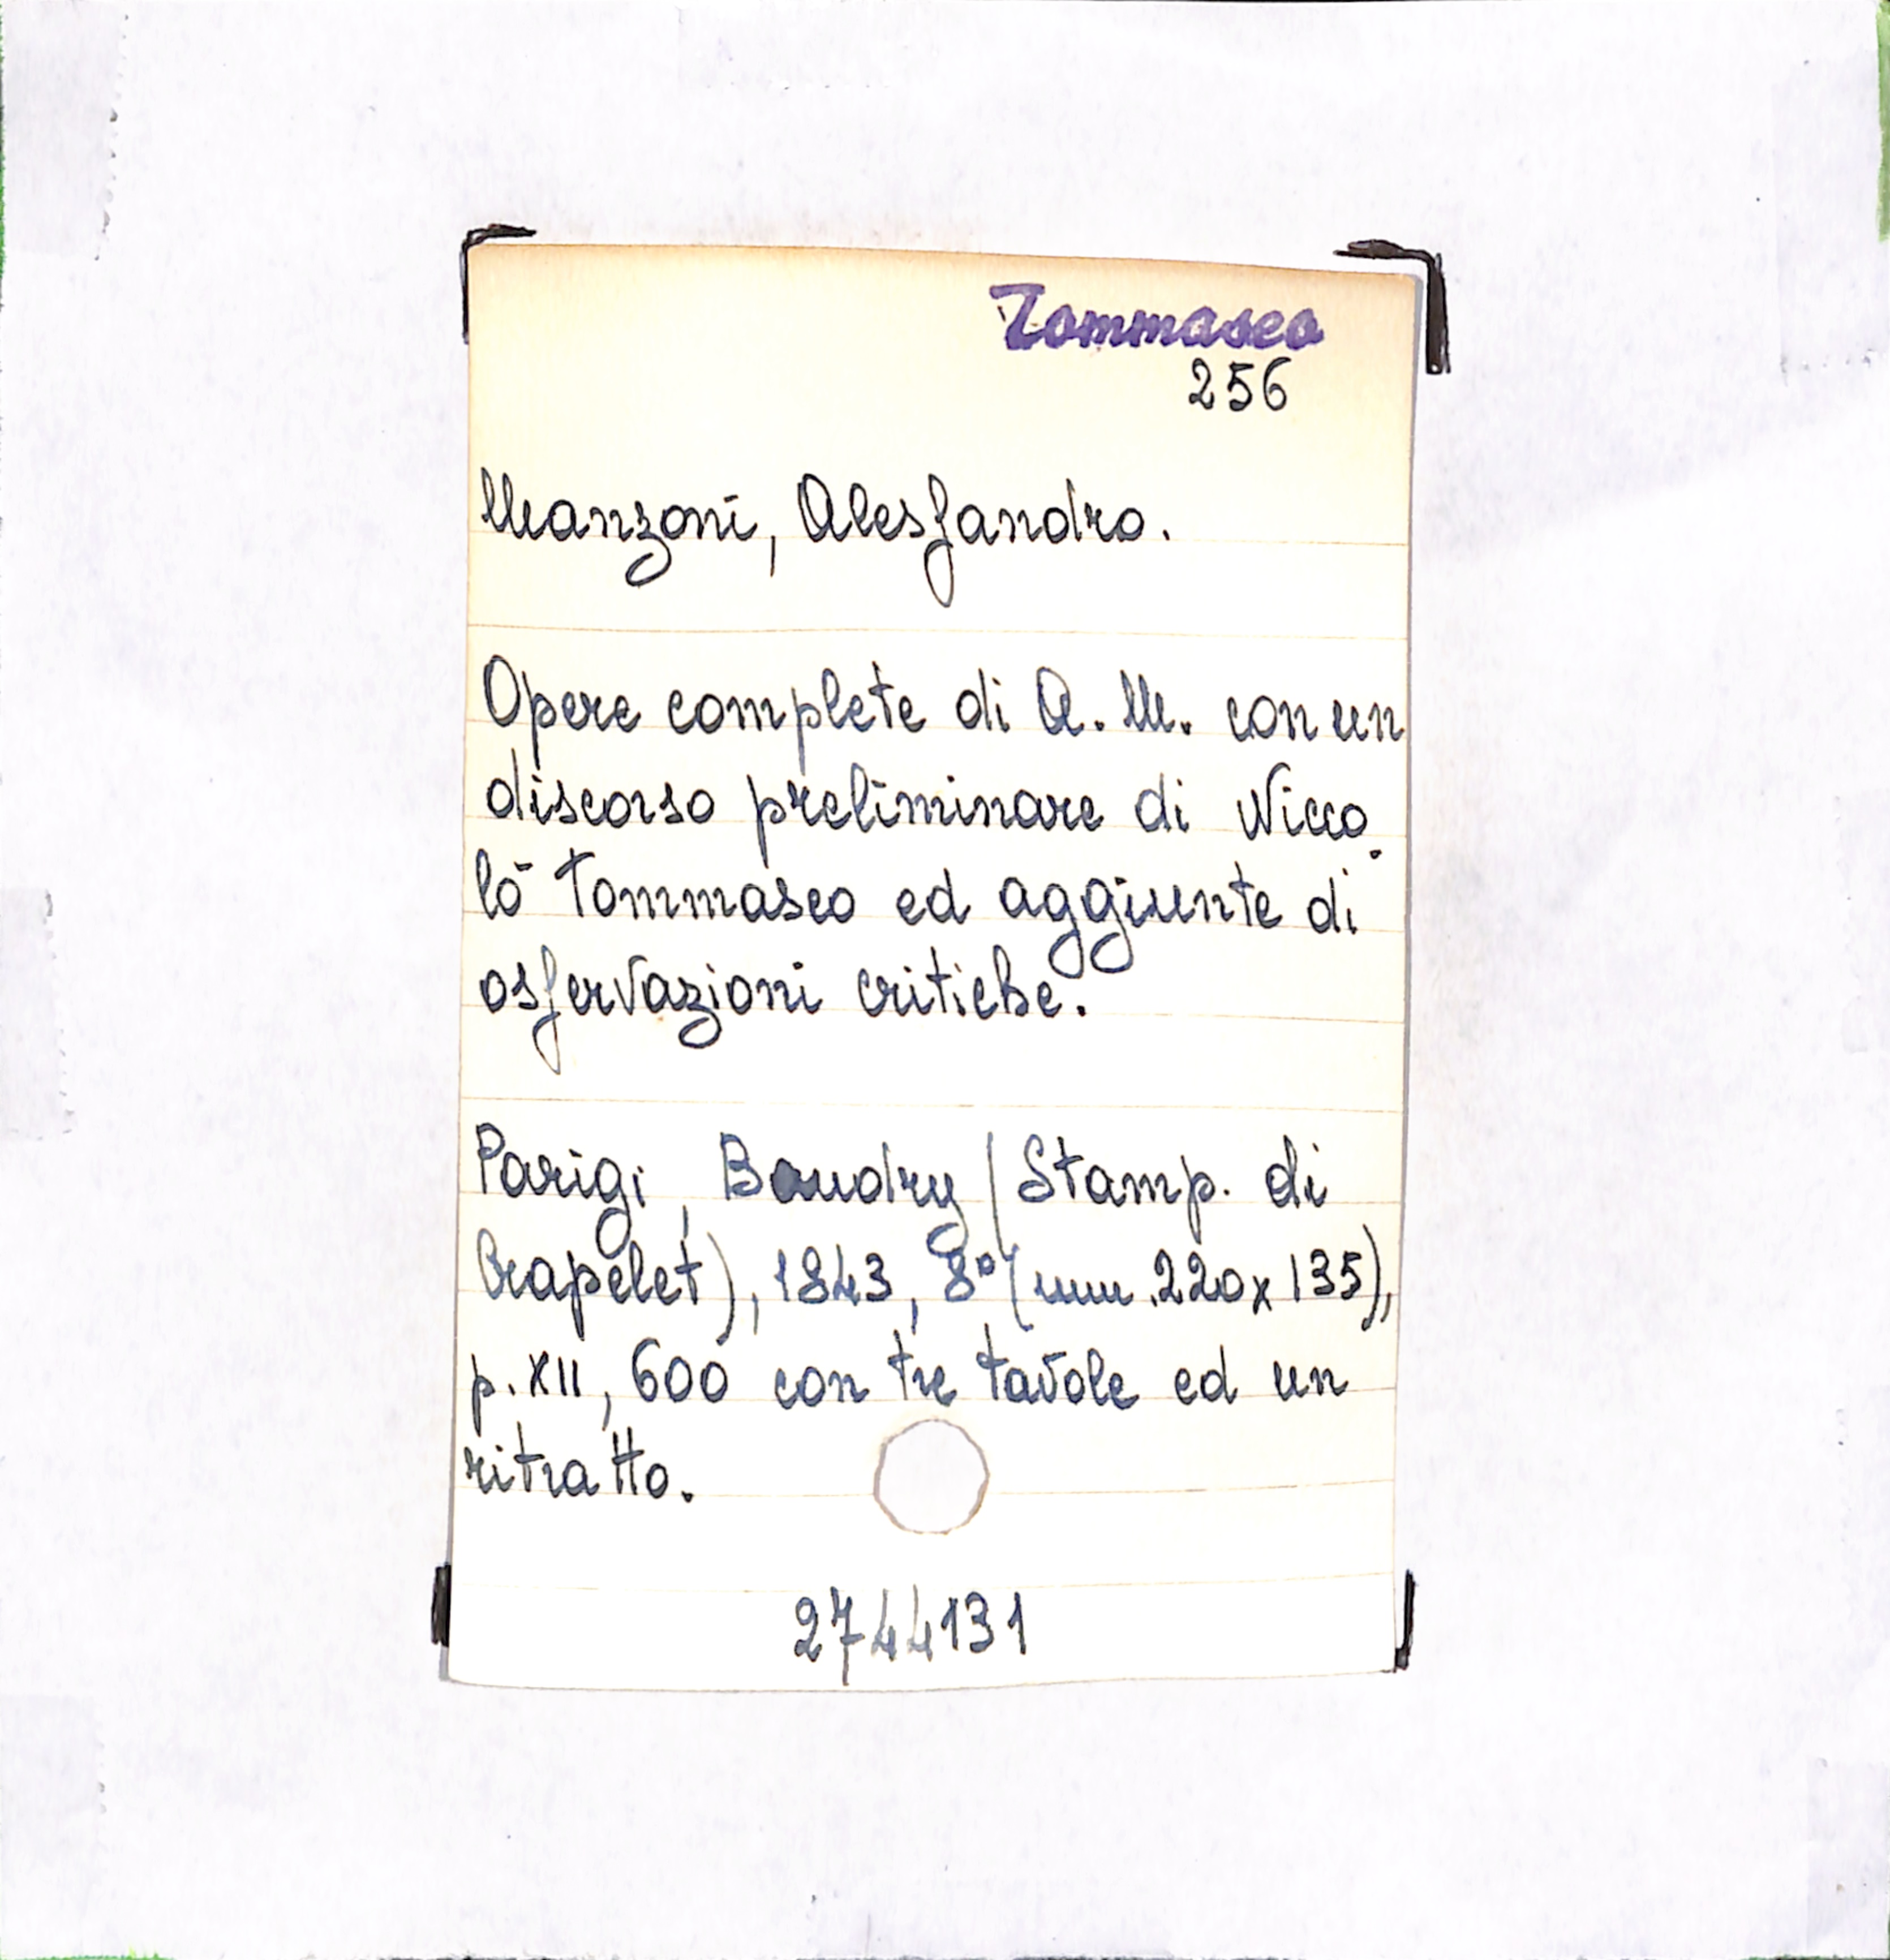 Tommaseo
256
Manzoni, Alessandro.
Opere complete di A. M. con un
discorso preliminare di Nicco
lò Tommaseo ed aggiunte di
osservazioni critiche.
Parigi, Baudry (Stamp. di
Crapelet), 1843, 8° (mm. 220x135),
p. XII, 600 con tre tavole ed un
ritratto.
2744131